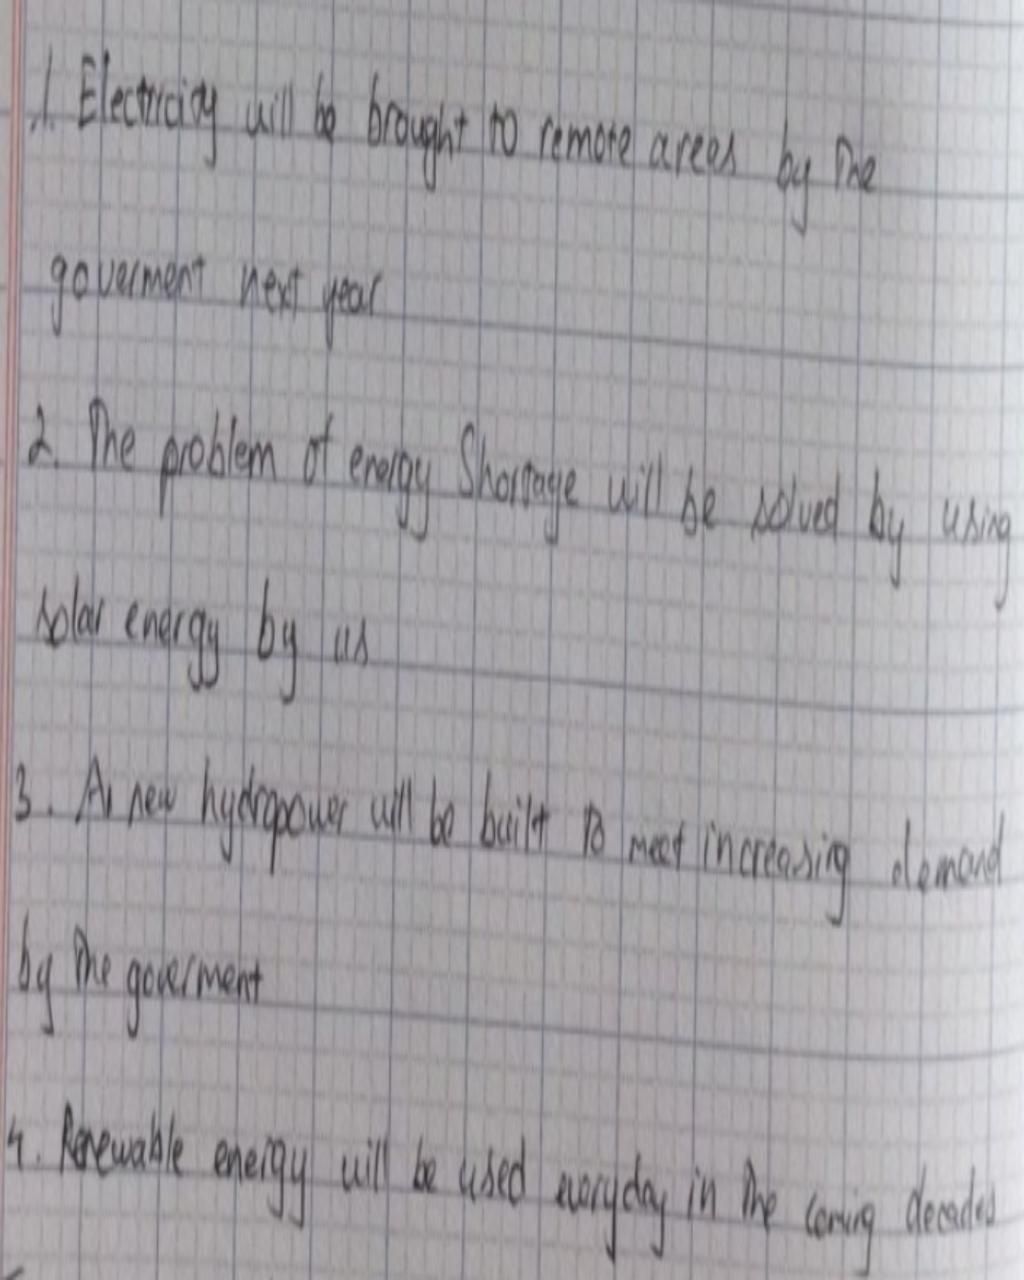 1. Electricity will be brought to remote arees by the
goverment next year
2. The problem of energy Shortage will be solved by using
solar energy by us
3. A new hydropower will be built to meet increasing demand
by the goverment
4. Renewable energy will be used everyday in the coming decades